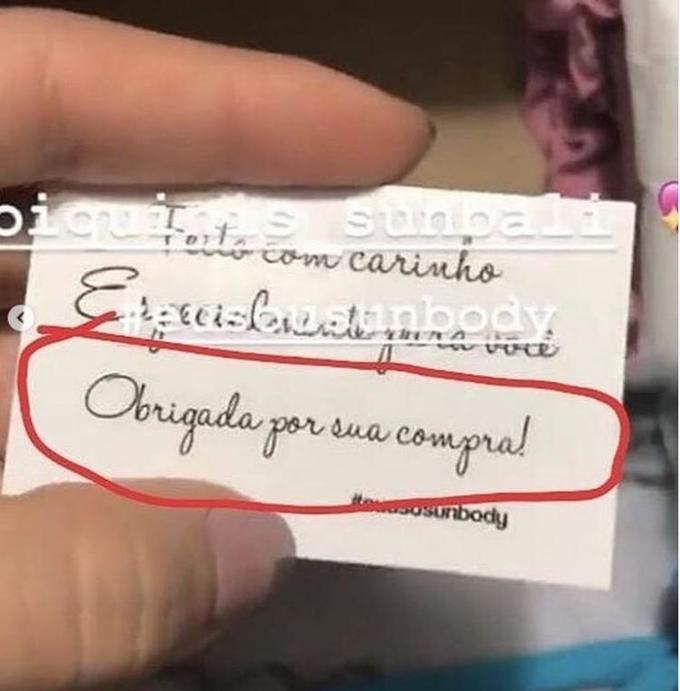 biquinis sunbali
Feito com carinho
#eusousunbody
Especialmente para você
Obrigada por sua compra!
#eusousunbody